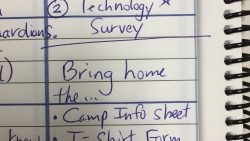 ② Technology *
ardians. Survey
1) Bring home
the...
• Camp Info Sheet
know • T-Shirt Form